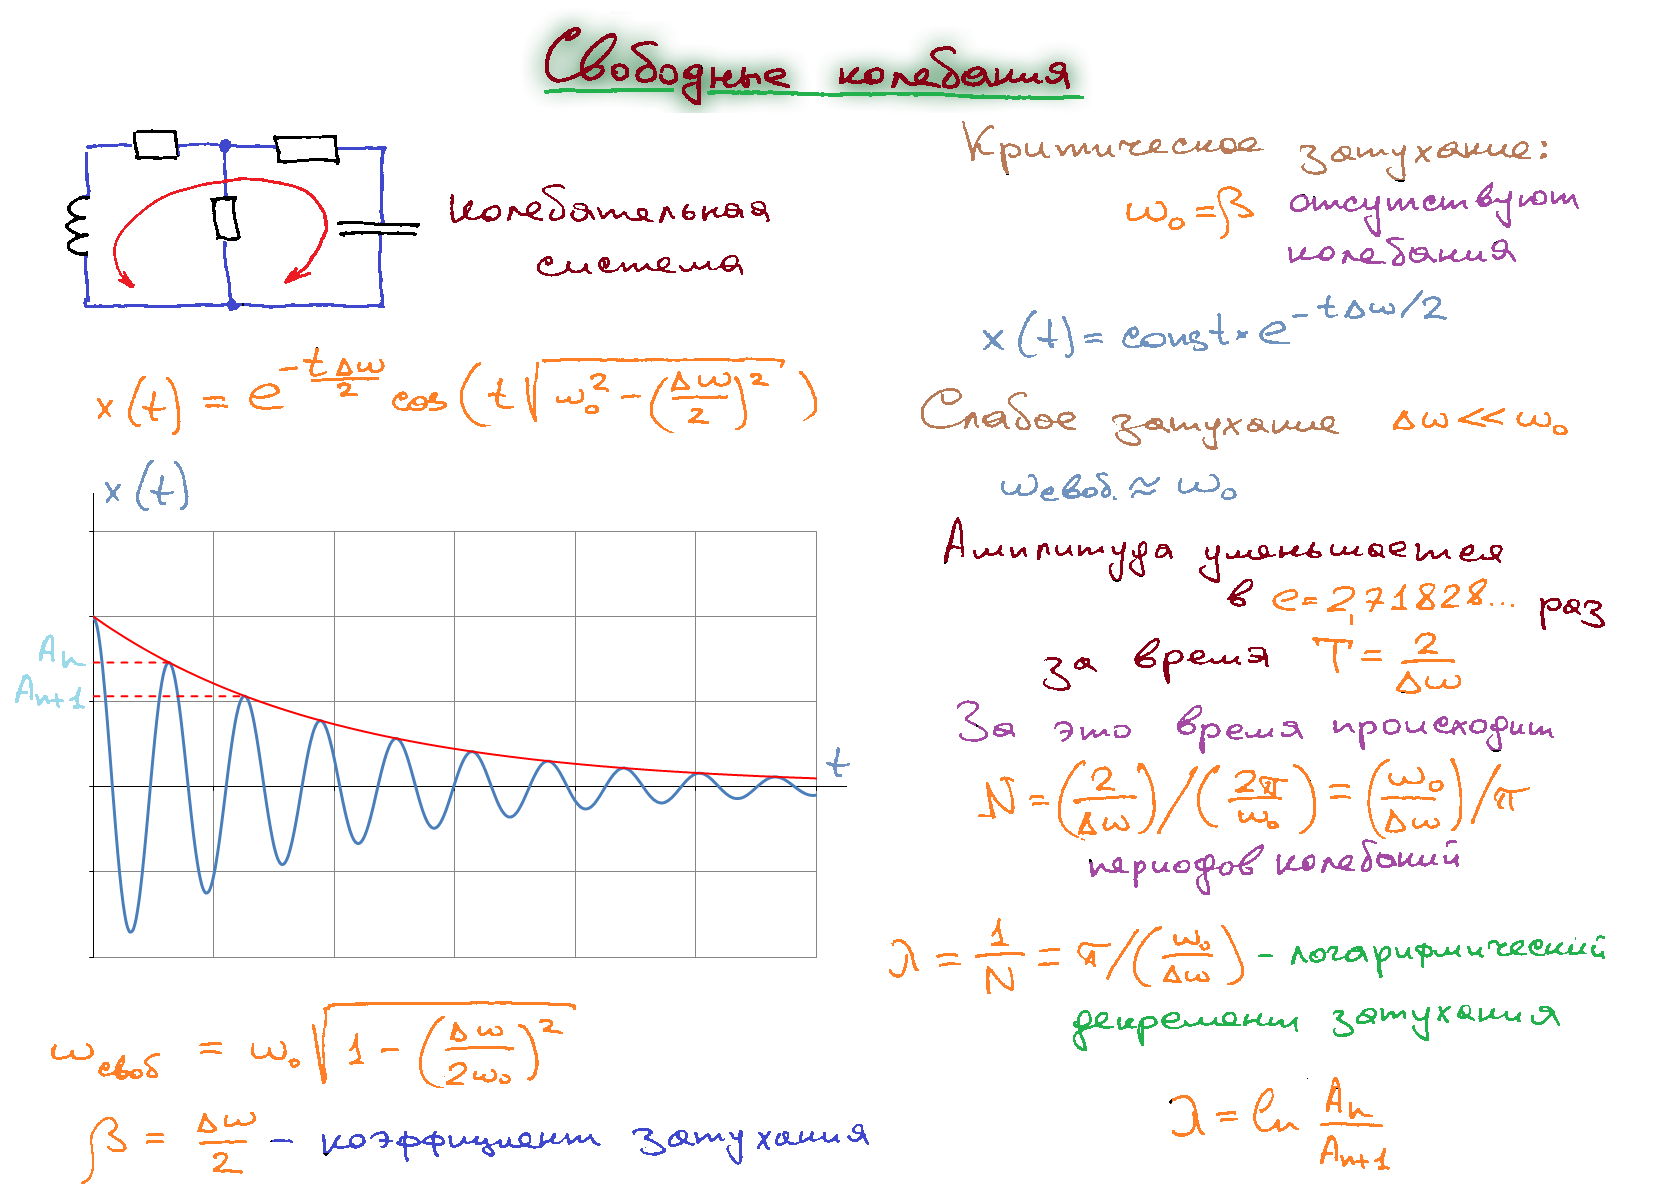 Свободные колебания
колебательная
система
x(t) = e^{-tΔω/2} cos(t√(ω₀² - (Δω/2)²))
x(t)
Aₙ
Aₙ₊₁
t
ω_своб = ω₀√(1 - (Δω/2ω₀)²)
β = Δω/2 - коэффициент затухания
Критическое затухание:
ω₀ = β отсутствуют
колебания
x(t) = const · e^{-tΔω/2}
Слабое затухание Δω << ω₀
ω_своб. ≈ ω₀
Амплитуда уменьшается
в e = 2,71828... раз
за время T = 2/Δω
За это время происходит
N = (2/Δω)/(2π/ω₀) = (ω₀/Δω)/π
периодов колебаний
λ = 1/N = π/(ω₀/Δω) - логарифмический
декремент затухания
λ = ln Aₙ/Aₙ₊₁